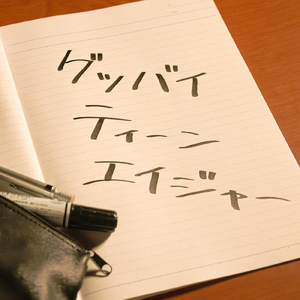 グッバイ
ティーン
エイジャー